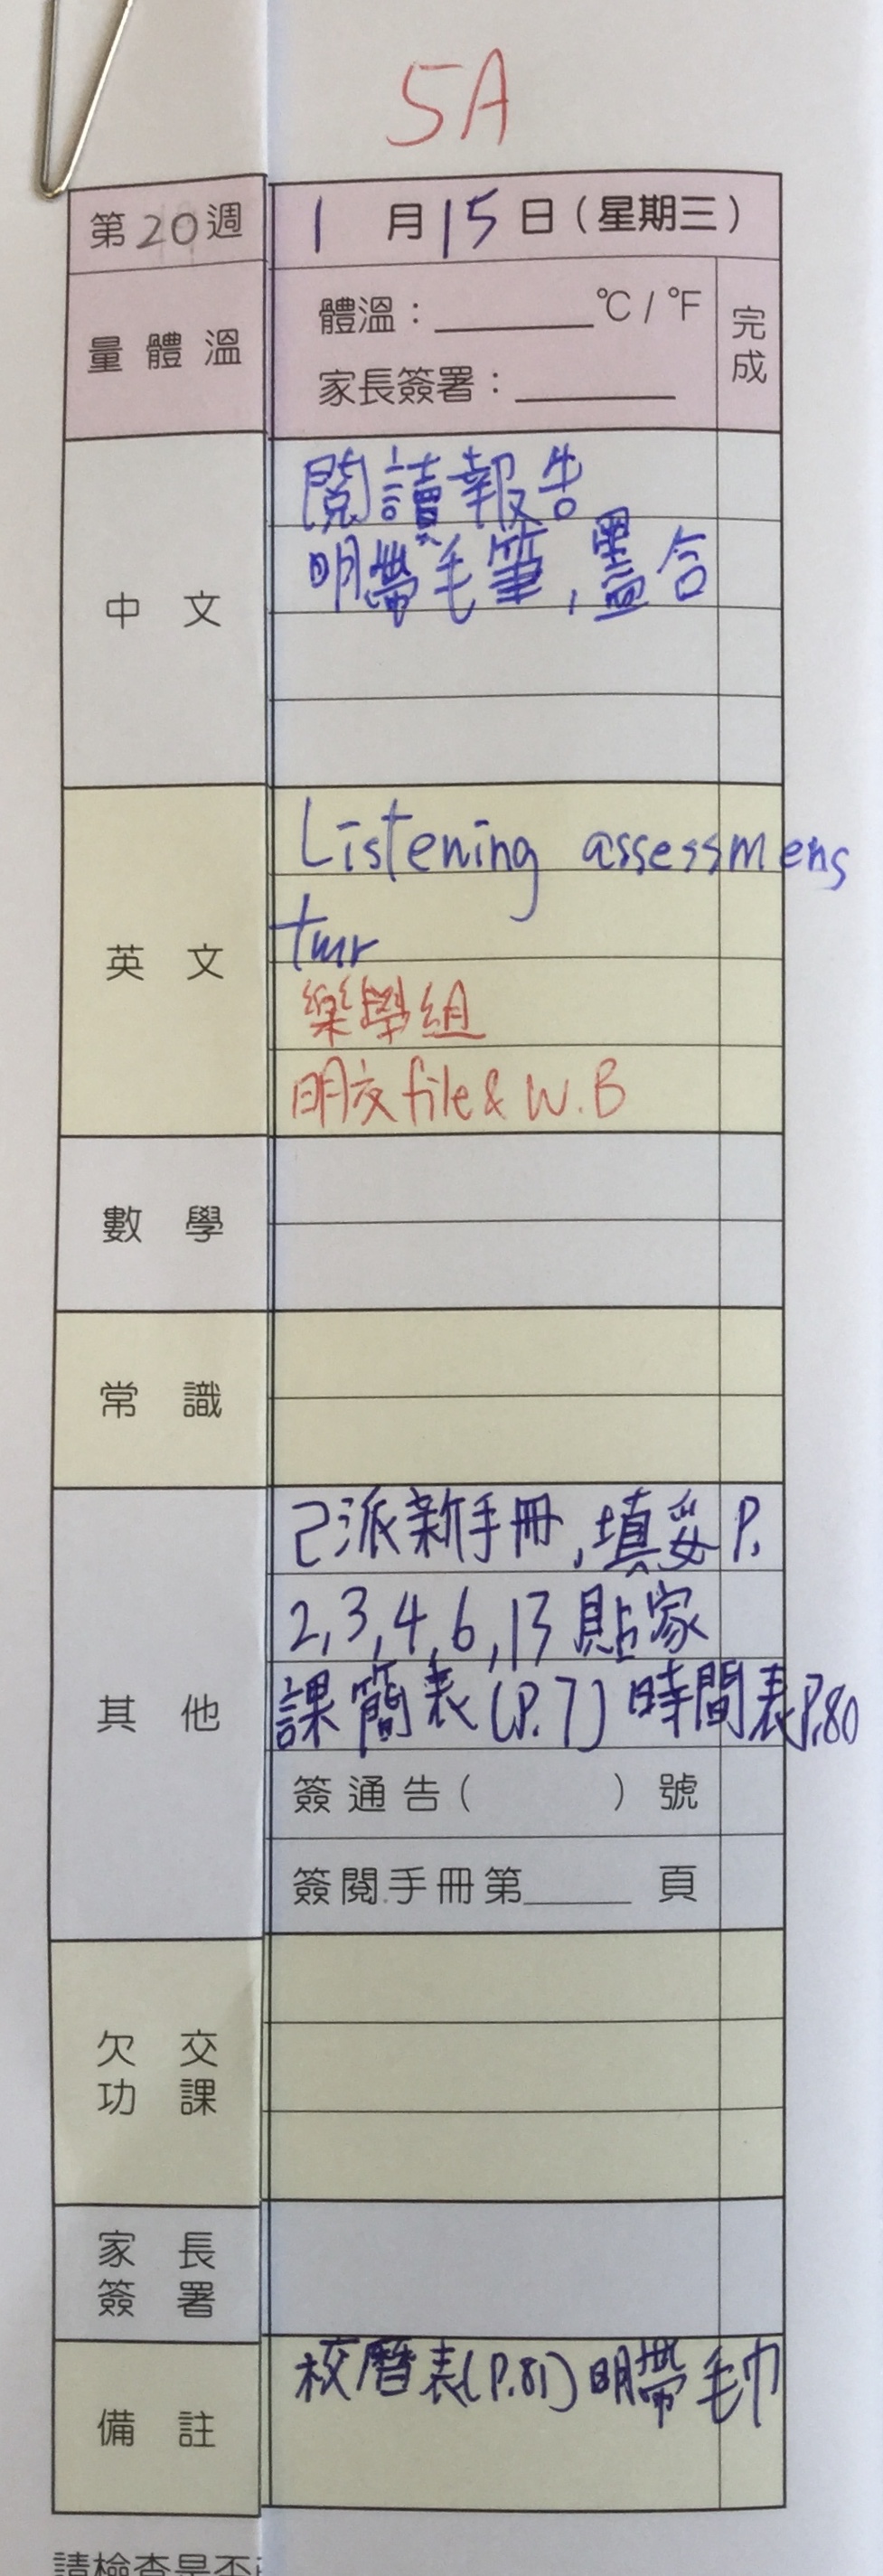 5A
第20週 1月15日(星期三)
量體溫
體溫：______°C / °F
家長簽署：______
完成
中文
閱讀報告
明帶毛筆,墨合
英文
Listening assessmens
tmr
樂學組
明交file & W.B
數學
常識
其他
已派新手冊,填妥P.
2,3,4,6,13 貼家
課簡表(P.7) 時間表P.80
簽通告( )號
簽閱手冊第______頁
欠交
功課
家長
簽署
備註
校曆表(P.81) 明帶毛巾
請檢查是否